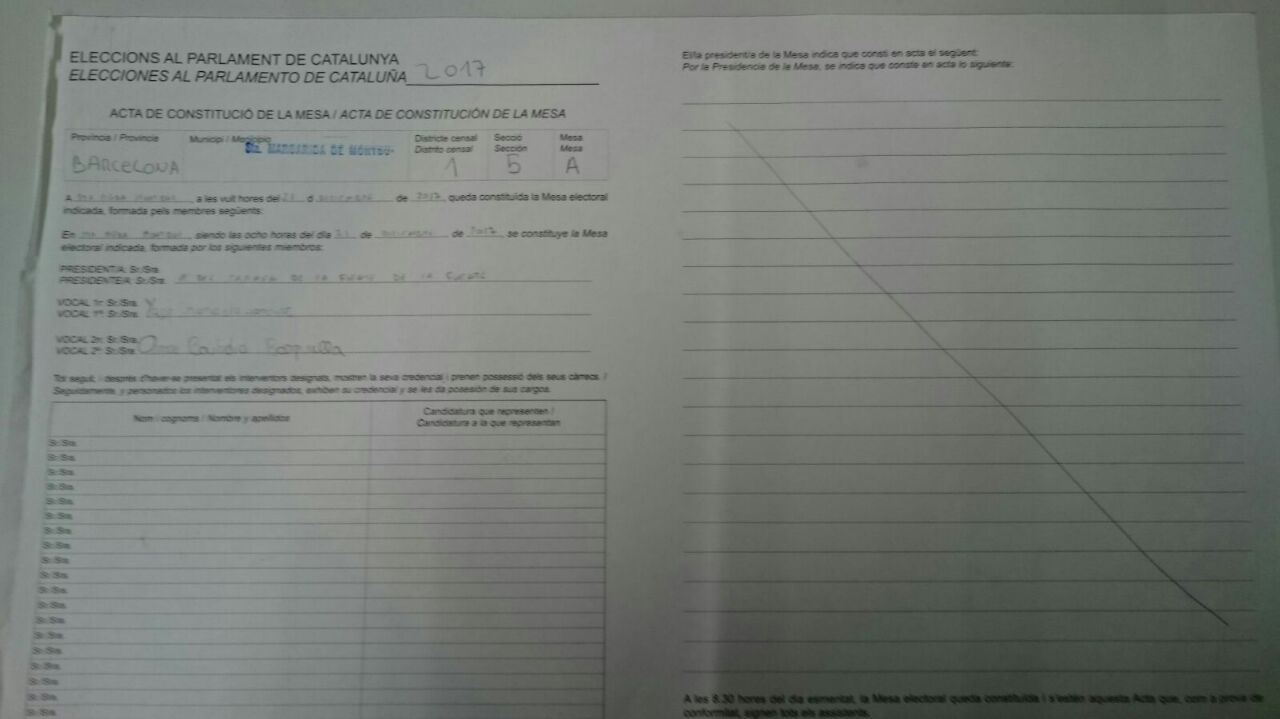 ELECCIONS AL PARLAMENT DE CATALUNYA
ELECCIONES AL PARLAMENTO DE CATALUÑA 2017
ACTA DE CONSTITUCIÓ DE LA MESA / ACTA DE CONSTITUCIÓN DE LA MESA
Provincia / Provincia Municipi / Municipio Districte censal Secció Mesa
Distrito censal Sección Mesa
BARCELONA MARGARIDA DE MONTBU- 1 5 A
A , a les vuit hores del d de 2017, queda constituïda la Mesa electoral
indicada, formada pels membres següents:
En , siendo las ocho horas del día de de 2017, se constituye la Mesa
electoral indicada, formada por los siguientes miembros:
PRESIDENT/A: Sr./Sra.
PRESIDENTE/A: Sr./Sra. DE LA DE LA
VOCAL 1r: Sr./Sra.
VOCAL 1º: Sr./Sra.
VOCAL 2n: Sr./Sra.
VOCAL 2º: Sr./Sra.
Tot seguit, i després d'haver-se presentat els interventors designats, mostren la seva credencial i prenen possessió dels seus càrrecs. /
Seguidamente, y personados los interventores designados, exhiben su credencial y se les da posesión de sus cargos.
Nom i cognoms / Nombre y apellidos
Candidatura que representen /
Candidatura a la que representan
Sr./Sra.
Sr./Sra.
Sr./Sra.
Sr./Sra.
Sr./Sra.
Sr./Sra.
Sr./Sra.
Sr./Sra.
Sr./Sra.
Sr./Sra.
Sr./Sra.
Sr./Sra.
Sr./Sra.
Sr./Sra.
Sr./Sra.
Sr./Sra.
Sr./Sra.
Sr./Sra.
Sr./Sra.
El/la president/a de la Mesa indica que consti en acta el següent:
Por la Presidencia de la Mesa, se indica que conste en acta lo siguiente:
A les 8.30 hores del dia esmentat, la Mesa electoral queda constituïda i s'estén aquesta Acta que, com a prova de
conformitat, signen tots els assistents.